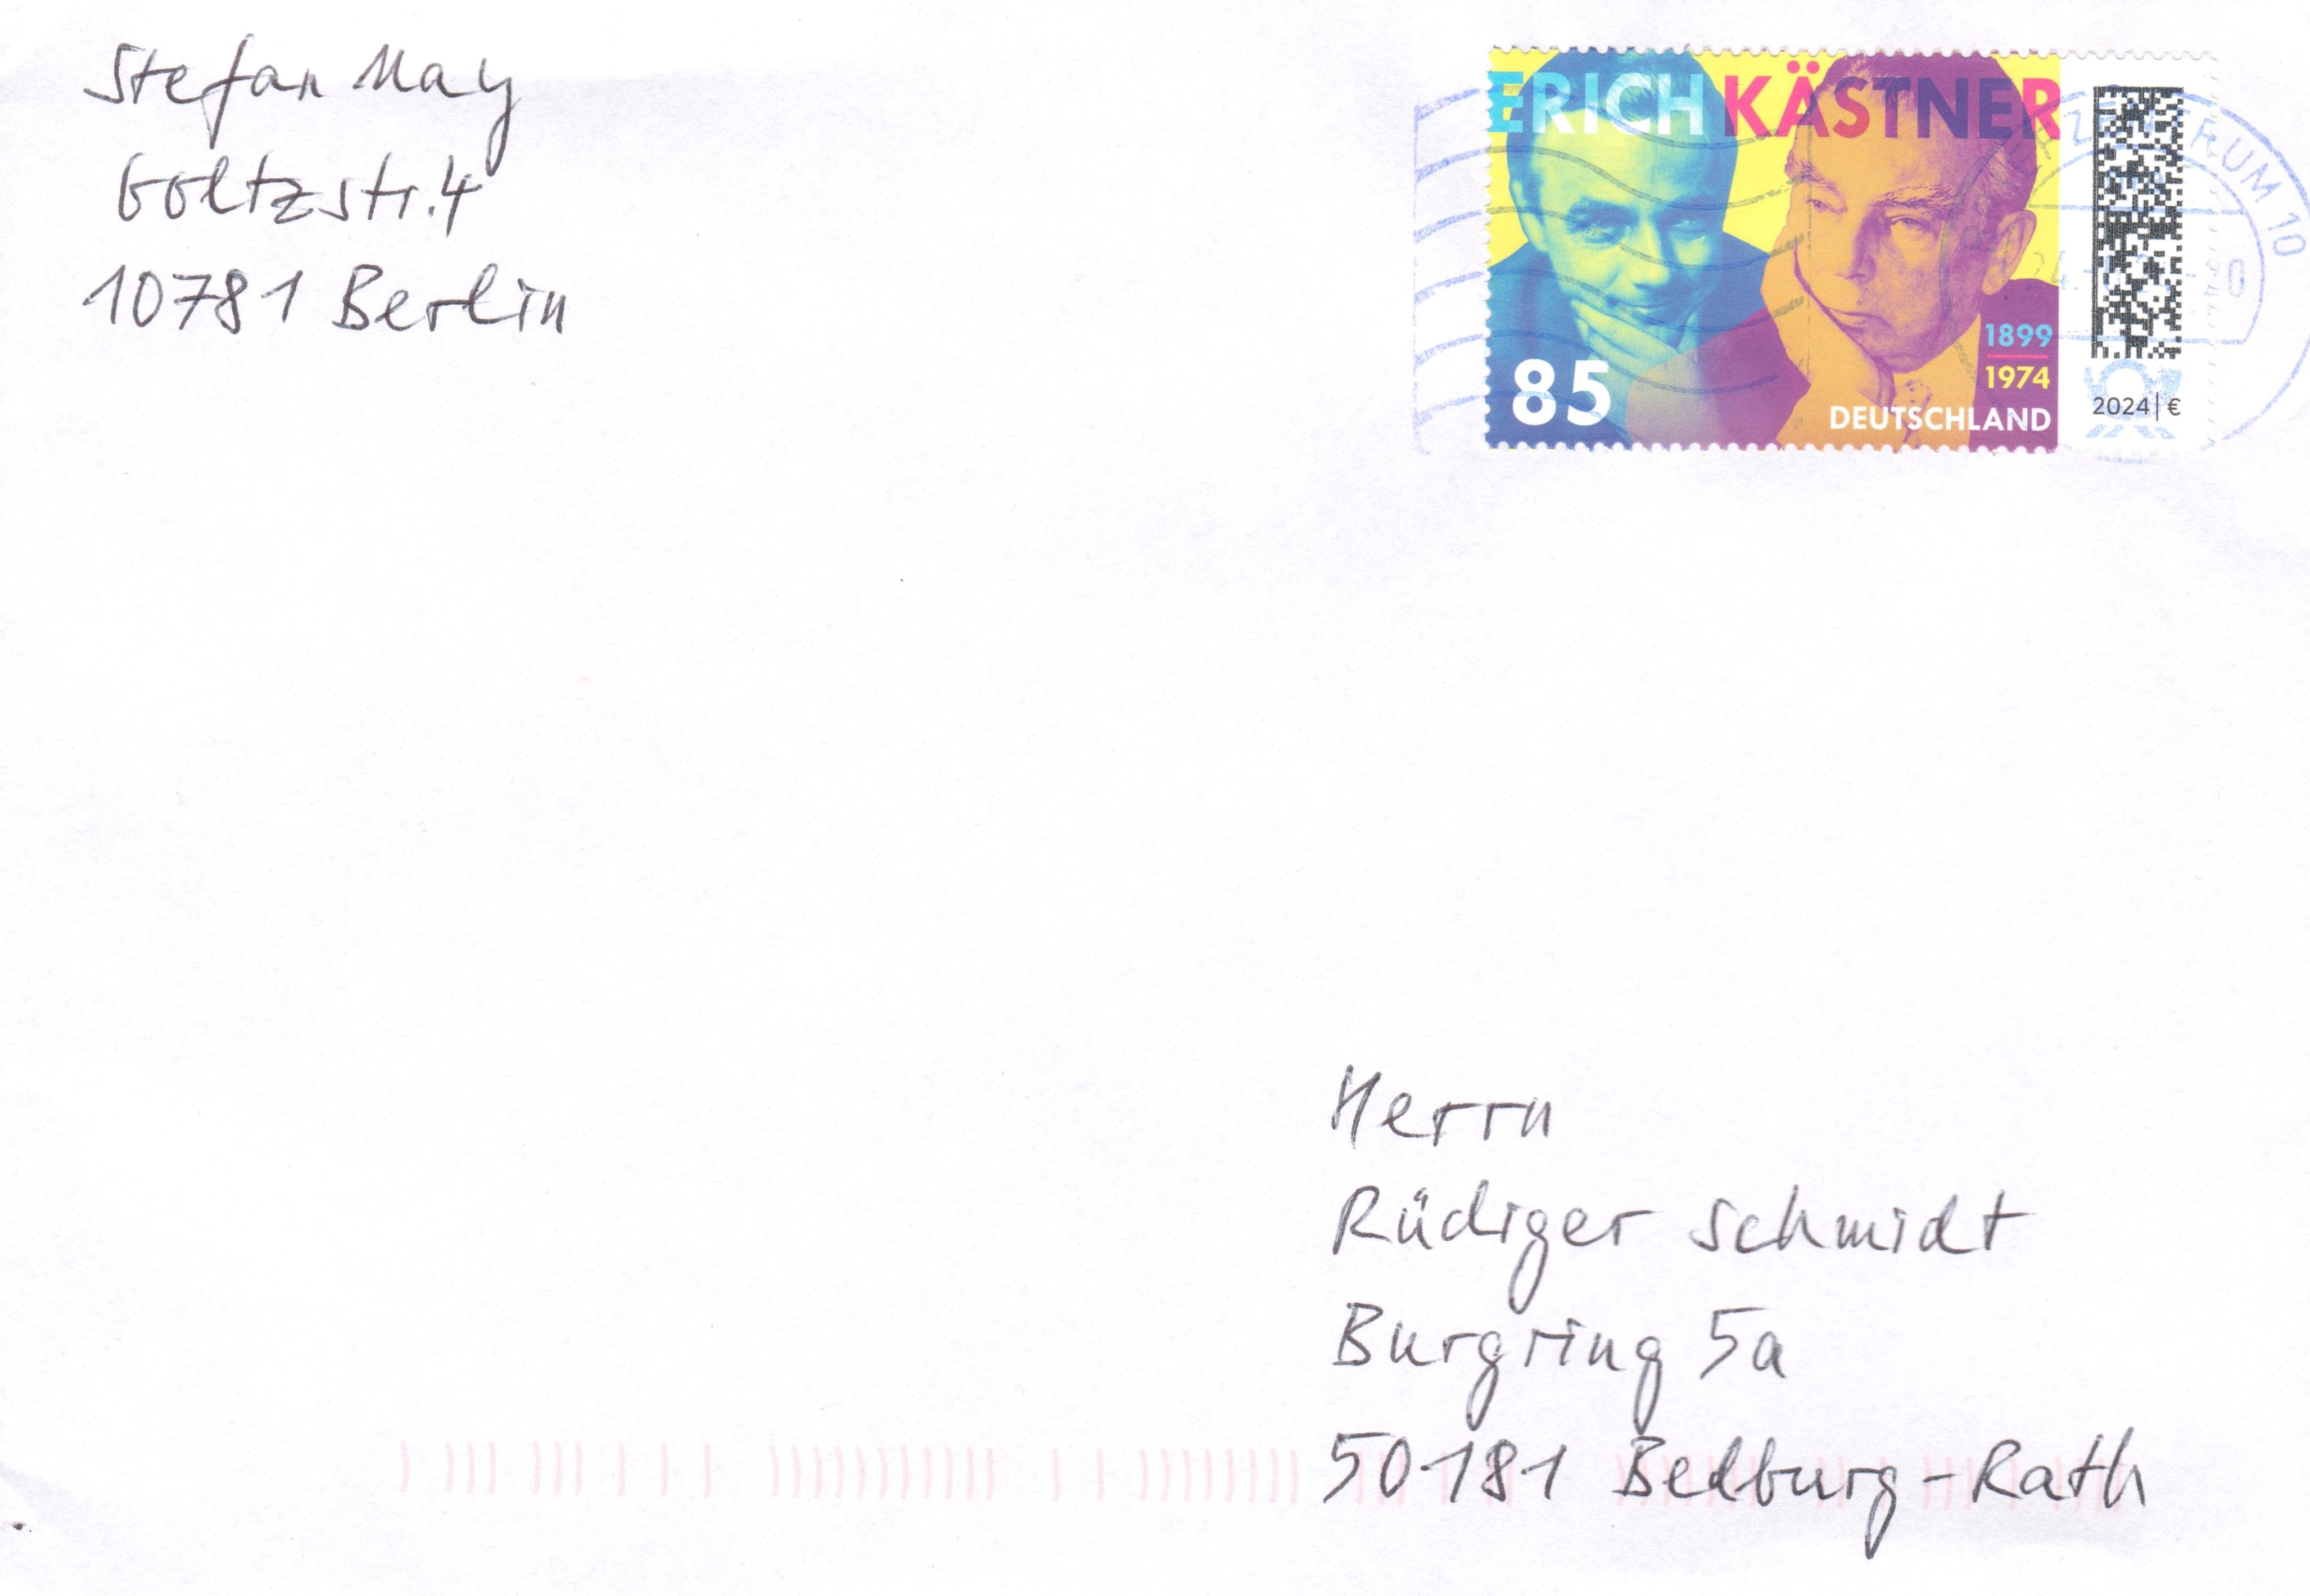 Stefan May
Goltzstr. 4
10781 Berlin
ERICH KÄSTNER
1899
1974
85
DEUTSCHLAND
2024 | €
Herrn
Rüdiger Schmidt
Burgring 5a
50181 Bedburg-Rath